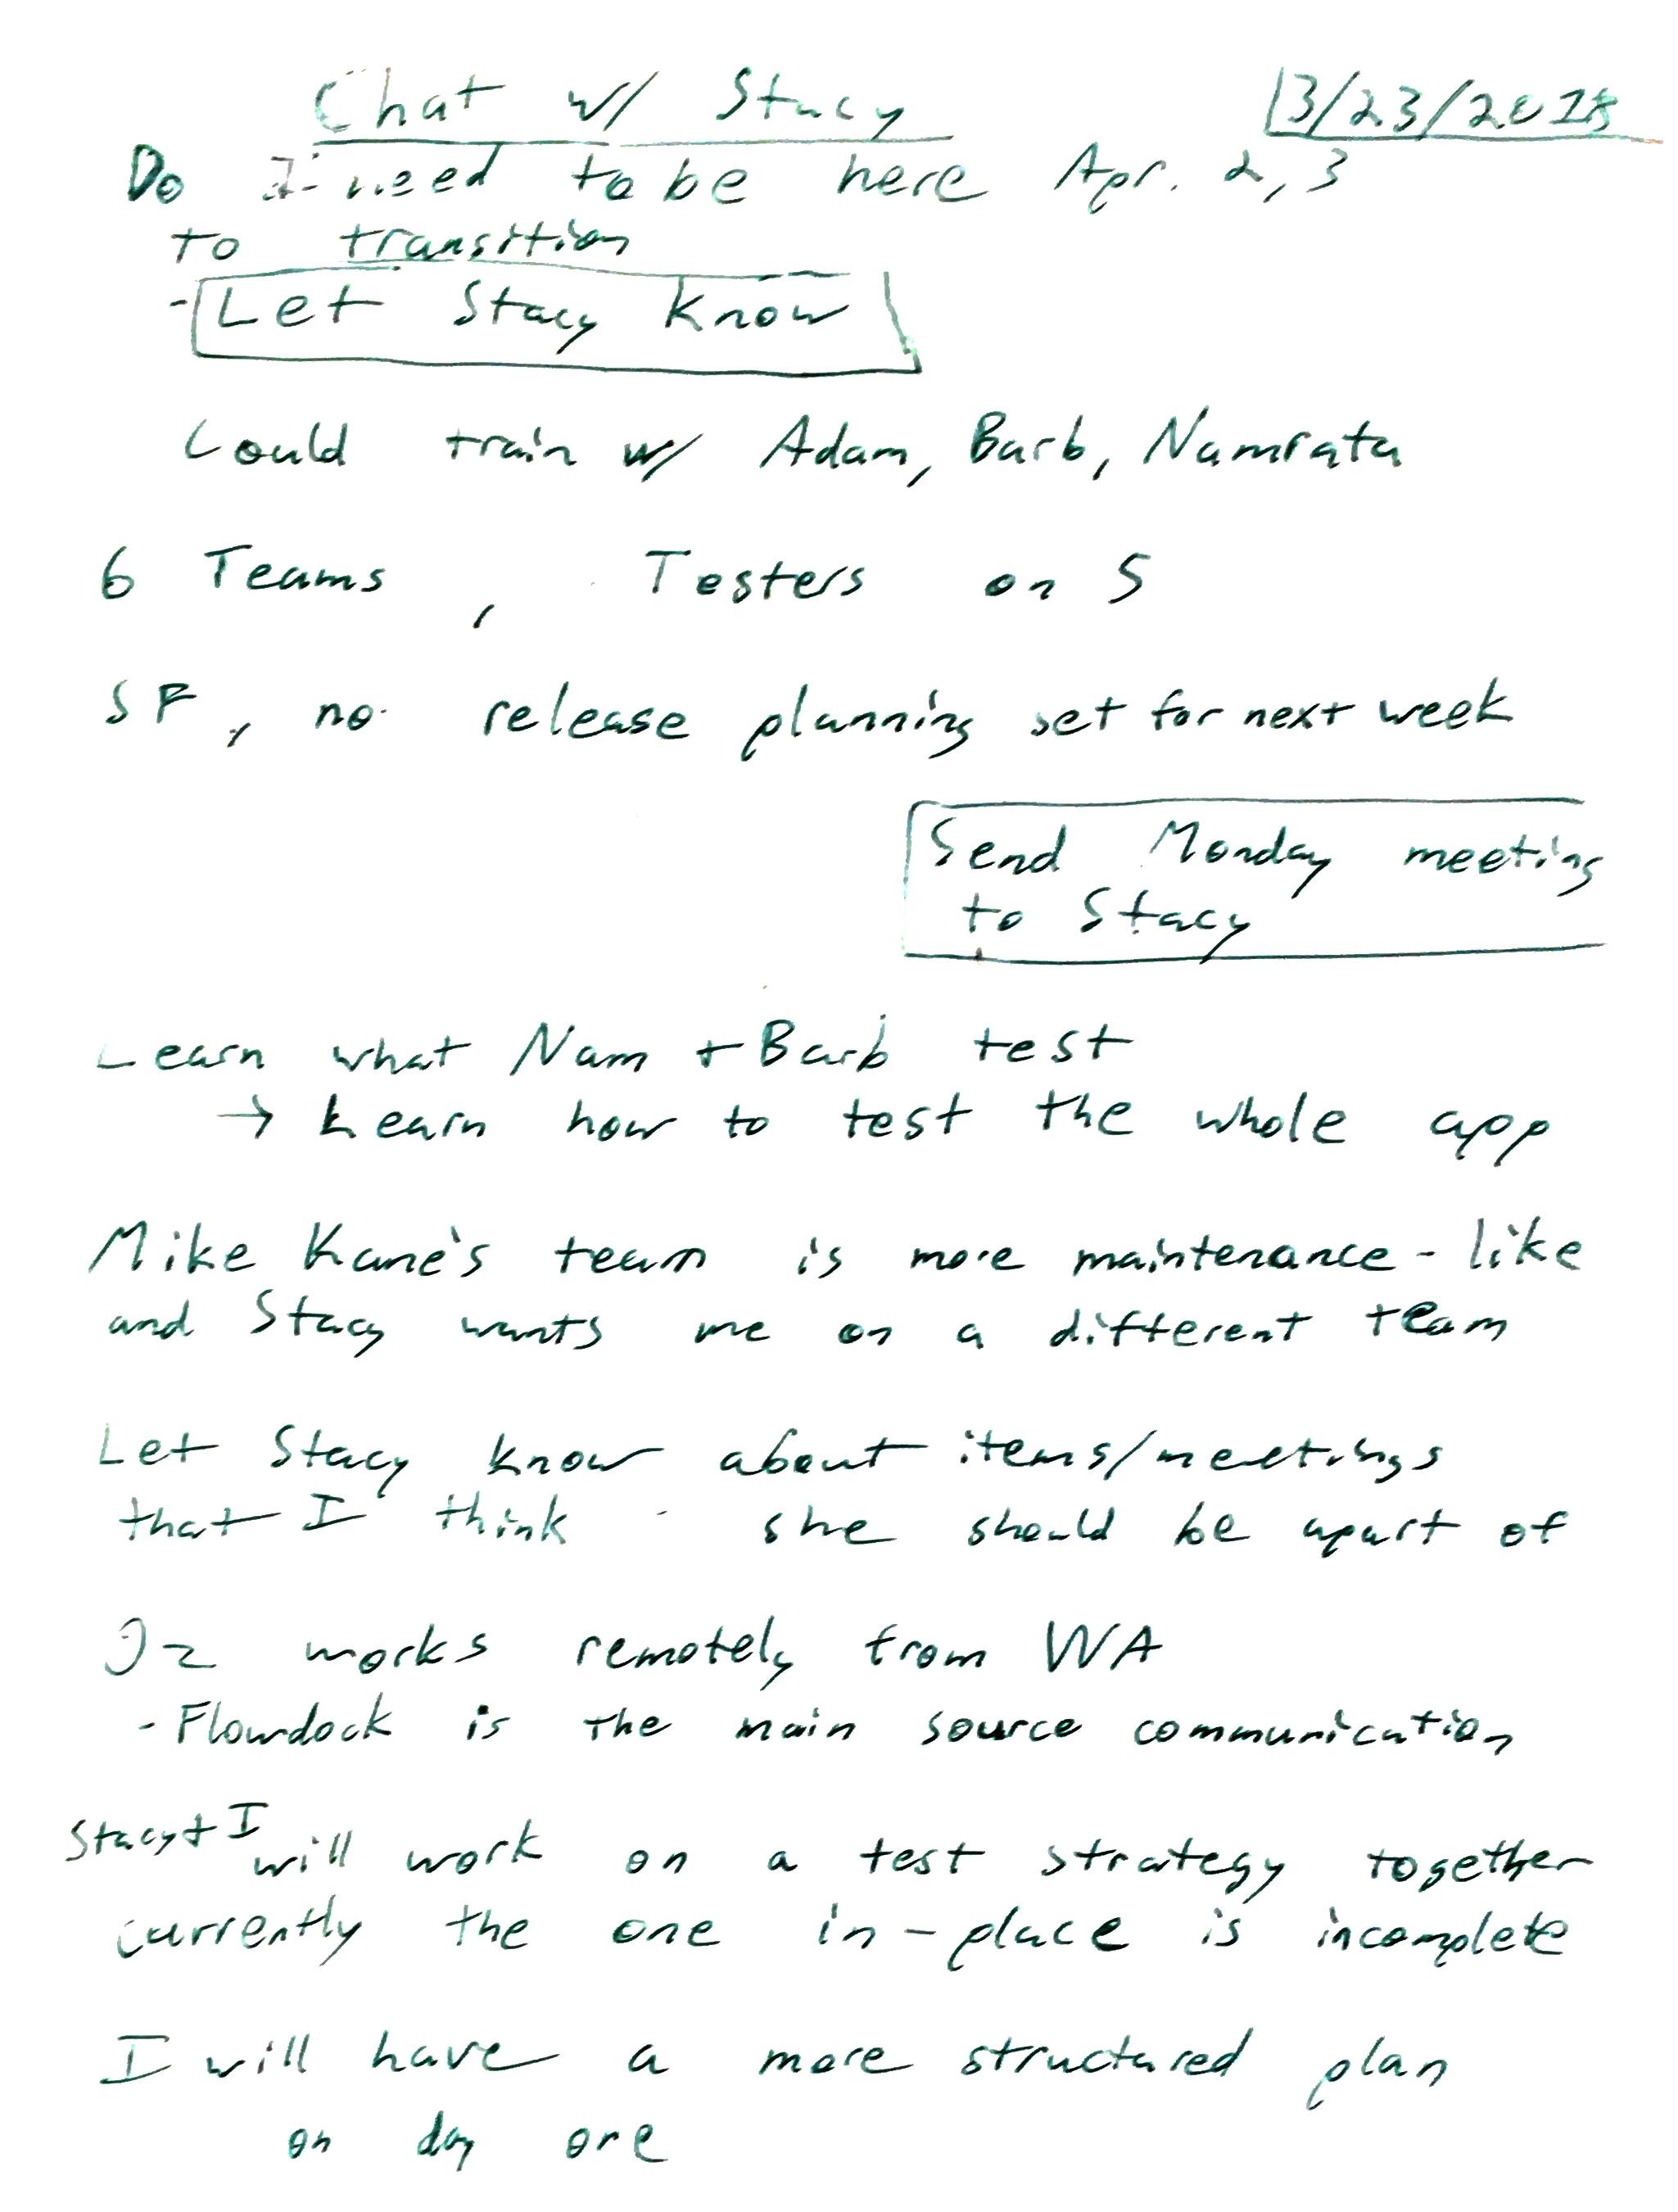 Chat w/ Stacy 3/23/2018
Do I need to be here Apr. 2, 3
to transition
- Let Stacy know
Could train w/ Adam, Barb, Namrata
6 Teams, Testers on 5
SF, no release planning set for next week
Send Monday meeting
to Stacy
Learn what Nam + Barb test
→ Learn how to test the whole app
Mike Kane's team is more maintenance-like
and Stacy wants me on a different team
Let Stacy know about items/meetings
that I think she should be apart of
Jz works remotely from WA
- Flowdock is the main source communication
Stacy + I will work on a test strategy together
currently the one in-place is incomplete
I will have a more structured plan
on day one